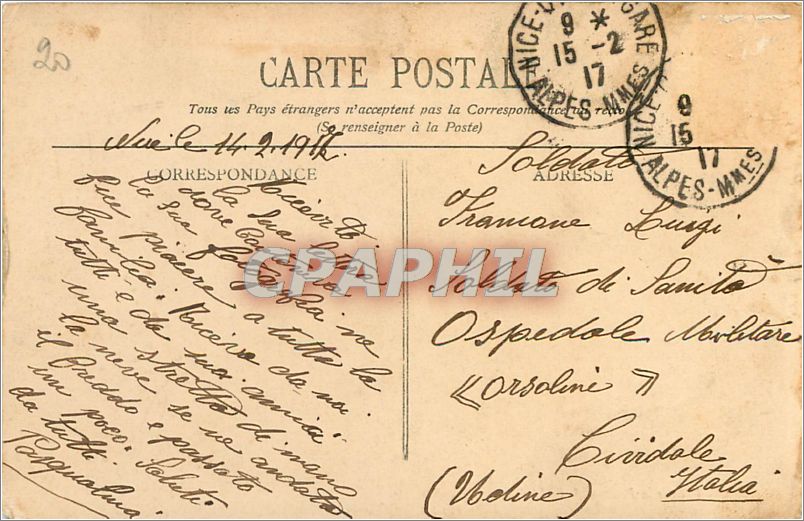 20
CARTE POSTALE
Tous les Pays étrangers n'acceptent pas la Correspondance au recto
(Se renseigner à la Poste)
NICE GARE
9 *
15 -2
17
ALPES-MMES
NICE
9
15
17
ALPES-MMES
Nice le 14.2.1917.
CORRESPONDANCE
ADRESSE
la sua
dove
la sua fotografia ne
fece piacere a tutta la
familia. Riceva da noi
tutti e da sua amica
una stretta di mano
la neve se ne andata
il freddo e passato
un poco. Saluti
da tutti.
Pasqualina
Soldato
Tramone Luigi
Soldato di Sanità
Ospedale Militare
« Orsoline »
Cividale
(Udine) Italia
CPAPHIL